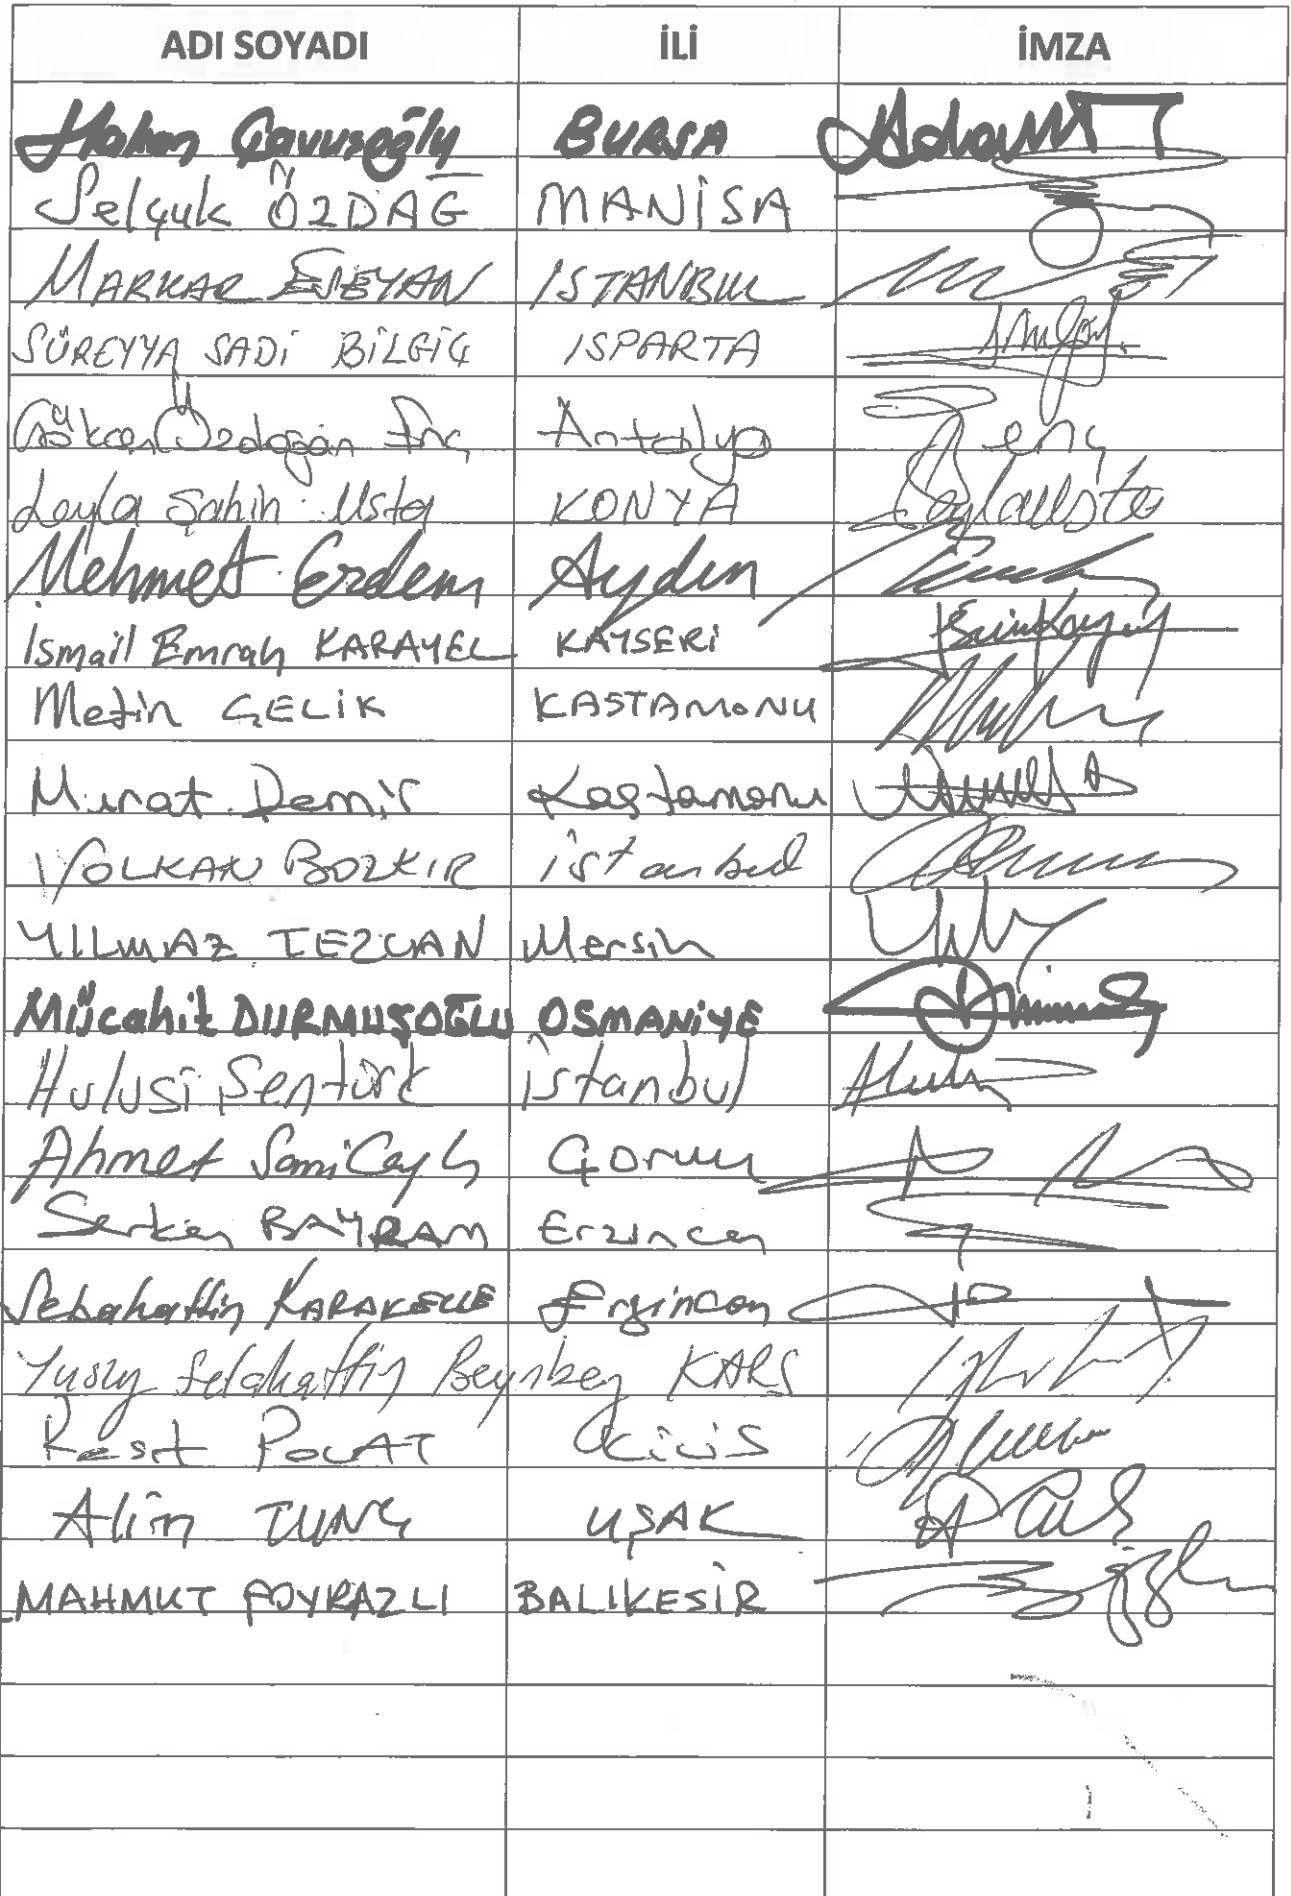 ADI SOYADI İLİ İMZA
Hakan Çavuşoğlu BURSA
Selçuk ÖZDAĞ MANİSA
MARKAR ESEYAN İSTANBUL
SÜREYYA SADİ BİLGİÇ ISPARTA
Gökcen Özdoğan Enç Antalya Enç
Leyla Şahin Usta KONYA Leyla Usta
Mehmet Erdem Aydın
İsmail Emrah KARAYEL KAYSERİ
Metin ÇELİK KASTAMONU
Murat Demir Kastamonu
VOLKAN BOZKIR İstanbul
YILMAZ TEZCAN Mersin
Mücahit DURMUŞOĞLU OSMANİYE
Hulusi Şentürk İstanbul
Ahmet Sami Ceylan Çorum
Serkan BAYRAM Erzincan
Sebahattin KARAKELLE Erzincan
Yusuf Selahattin Beyribey KARS
Reşit POLAT Kilis
Alim TUNÇ UŞAK
MAHMUT POYRAZLI BALIKESİR